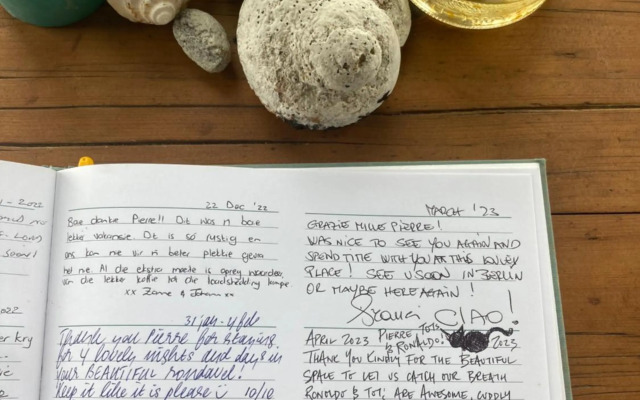 - 2022
soon!
2022
er kry
22 Dec '22
Baie danke Pierre!! Dit was 'n baie
lekke vakansie. Dit is so rustig en
ons kon nie vir 'n beter plekkie gevra
het nie. Al die ekstra moeite is opreg waardeer,
van die lekke koffie tot die loadshedding lampe
xx Zane & Johann xx
31 Jan - 4 Feb
Thank you Pierre for
for 4 lovely nights and days in
your BEAUTIFUL Rondavel!
Keep it like it is please 10/10
MARCH '23
GRAZIE MILLE PIERRE!
WAS NICE TO SEE YOU AGAIN AND
SPEND TIME WITH YOU AT THIS LOVELY
PLACE! SEE U SOON IN BERLIN
OR MAYBE HERE AGAIN!
CIAO!
APRIL 2023 PIERRE, TOTI & RONALDO! 2023
THANK YOU KINDLY FOR THE BEAUTIFUL
SPACE TO LET US CATCH OUR BREATH
RONALDO & TOTI ARE AWESOME, CUDDLY